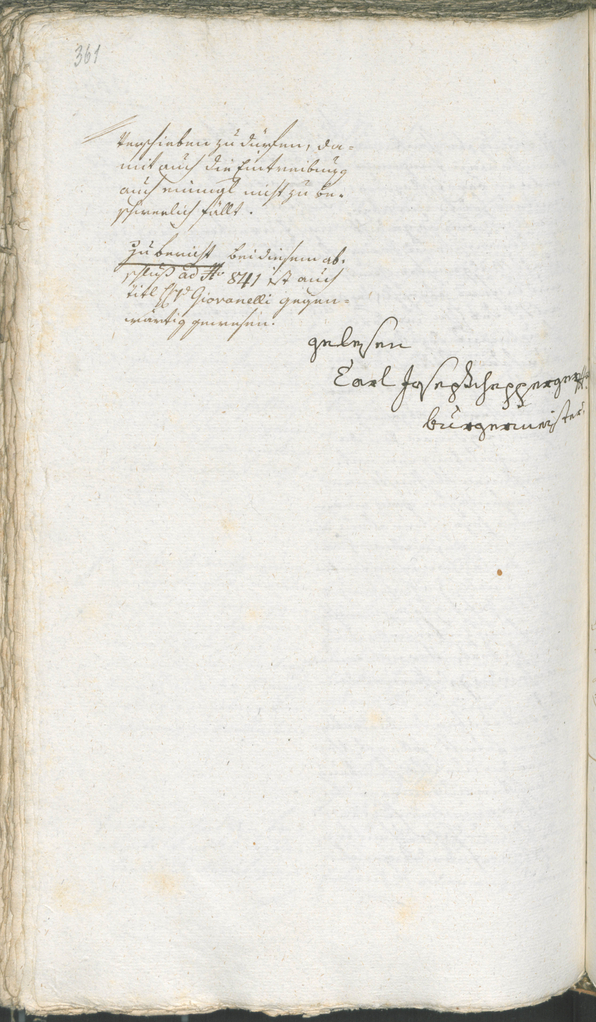 361
verschieben zu dürfen, da-
mit auch die Eintreibung
auch nicht zu be-
schwerlich fällt.
Zu bericht bei diesem ab-
schluß ad Nro 841 ist auch
titl Hr v Giovanelli gegen-
wärtig gewesen.
gelesen
Carl Joseph
burgermeister